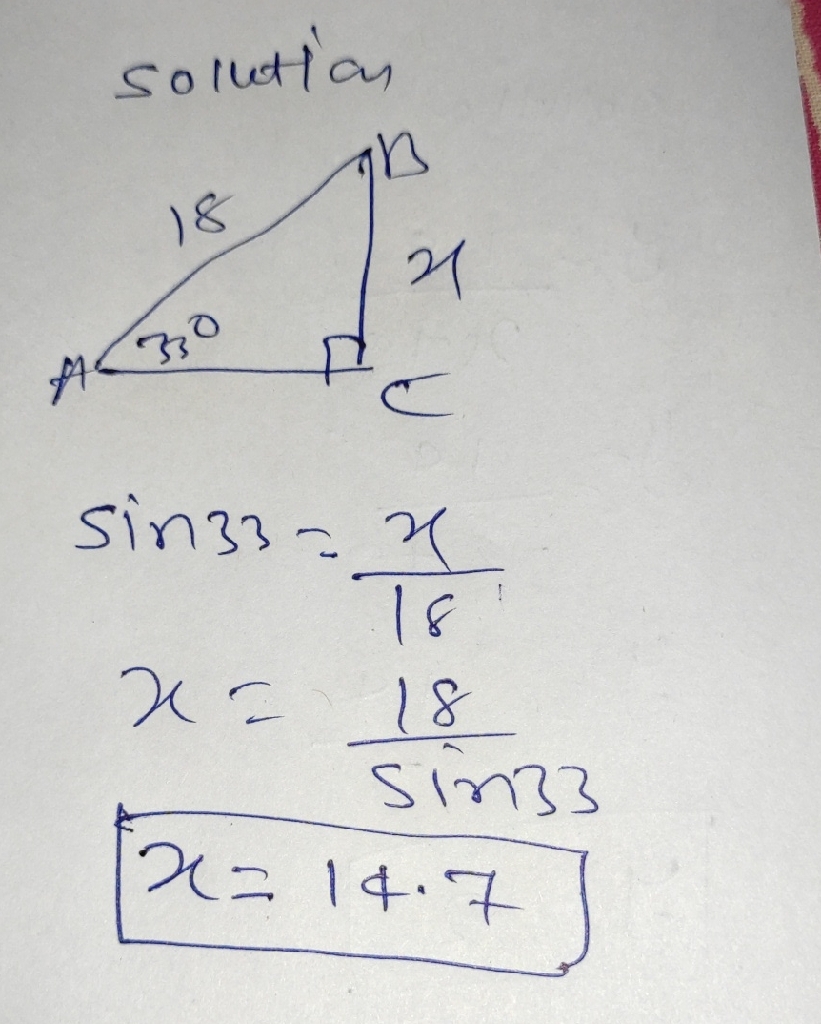 solution
B
18
x
33°
A
C
sin33 = x
18
x = 18
sin33
x = 14.7